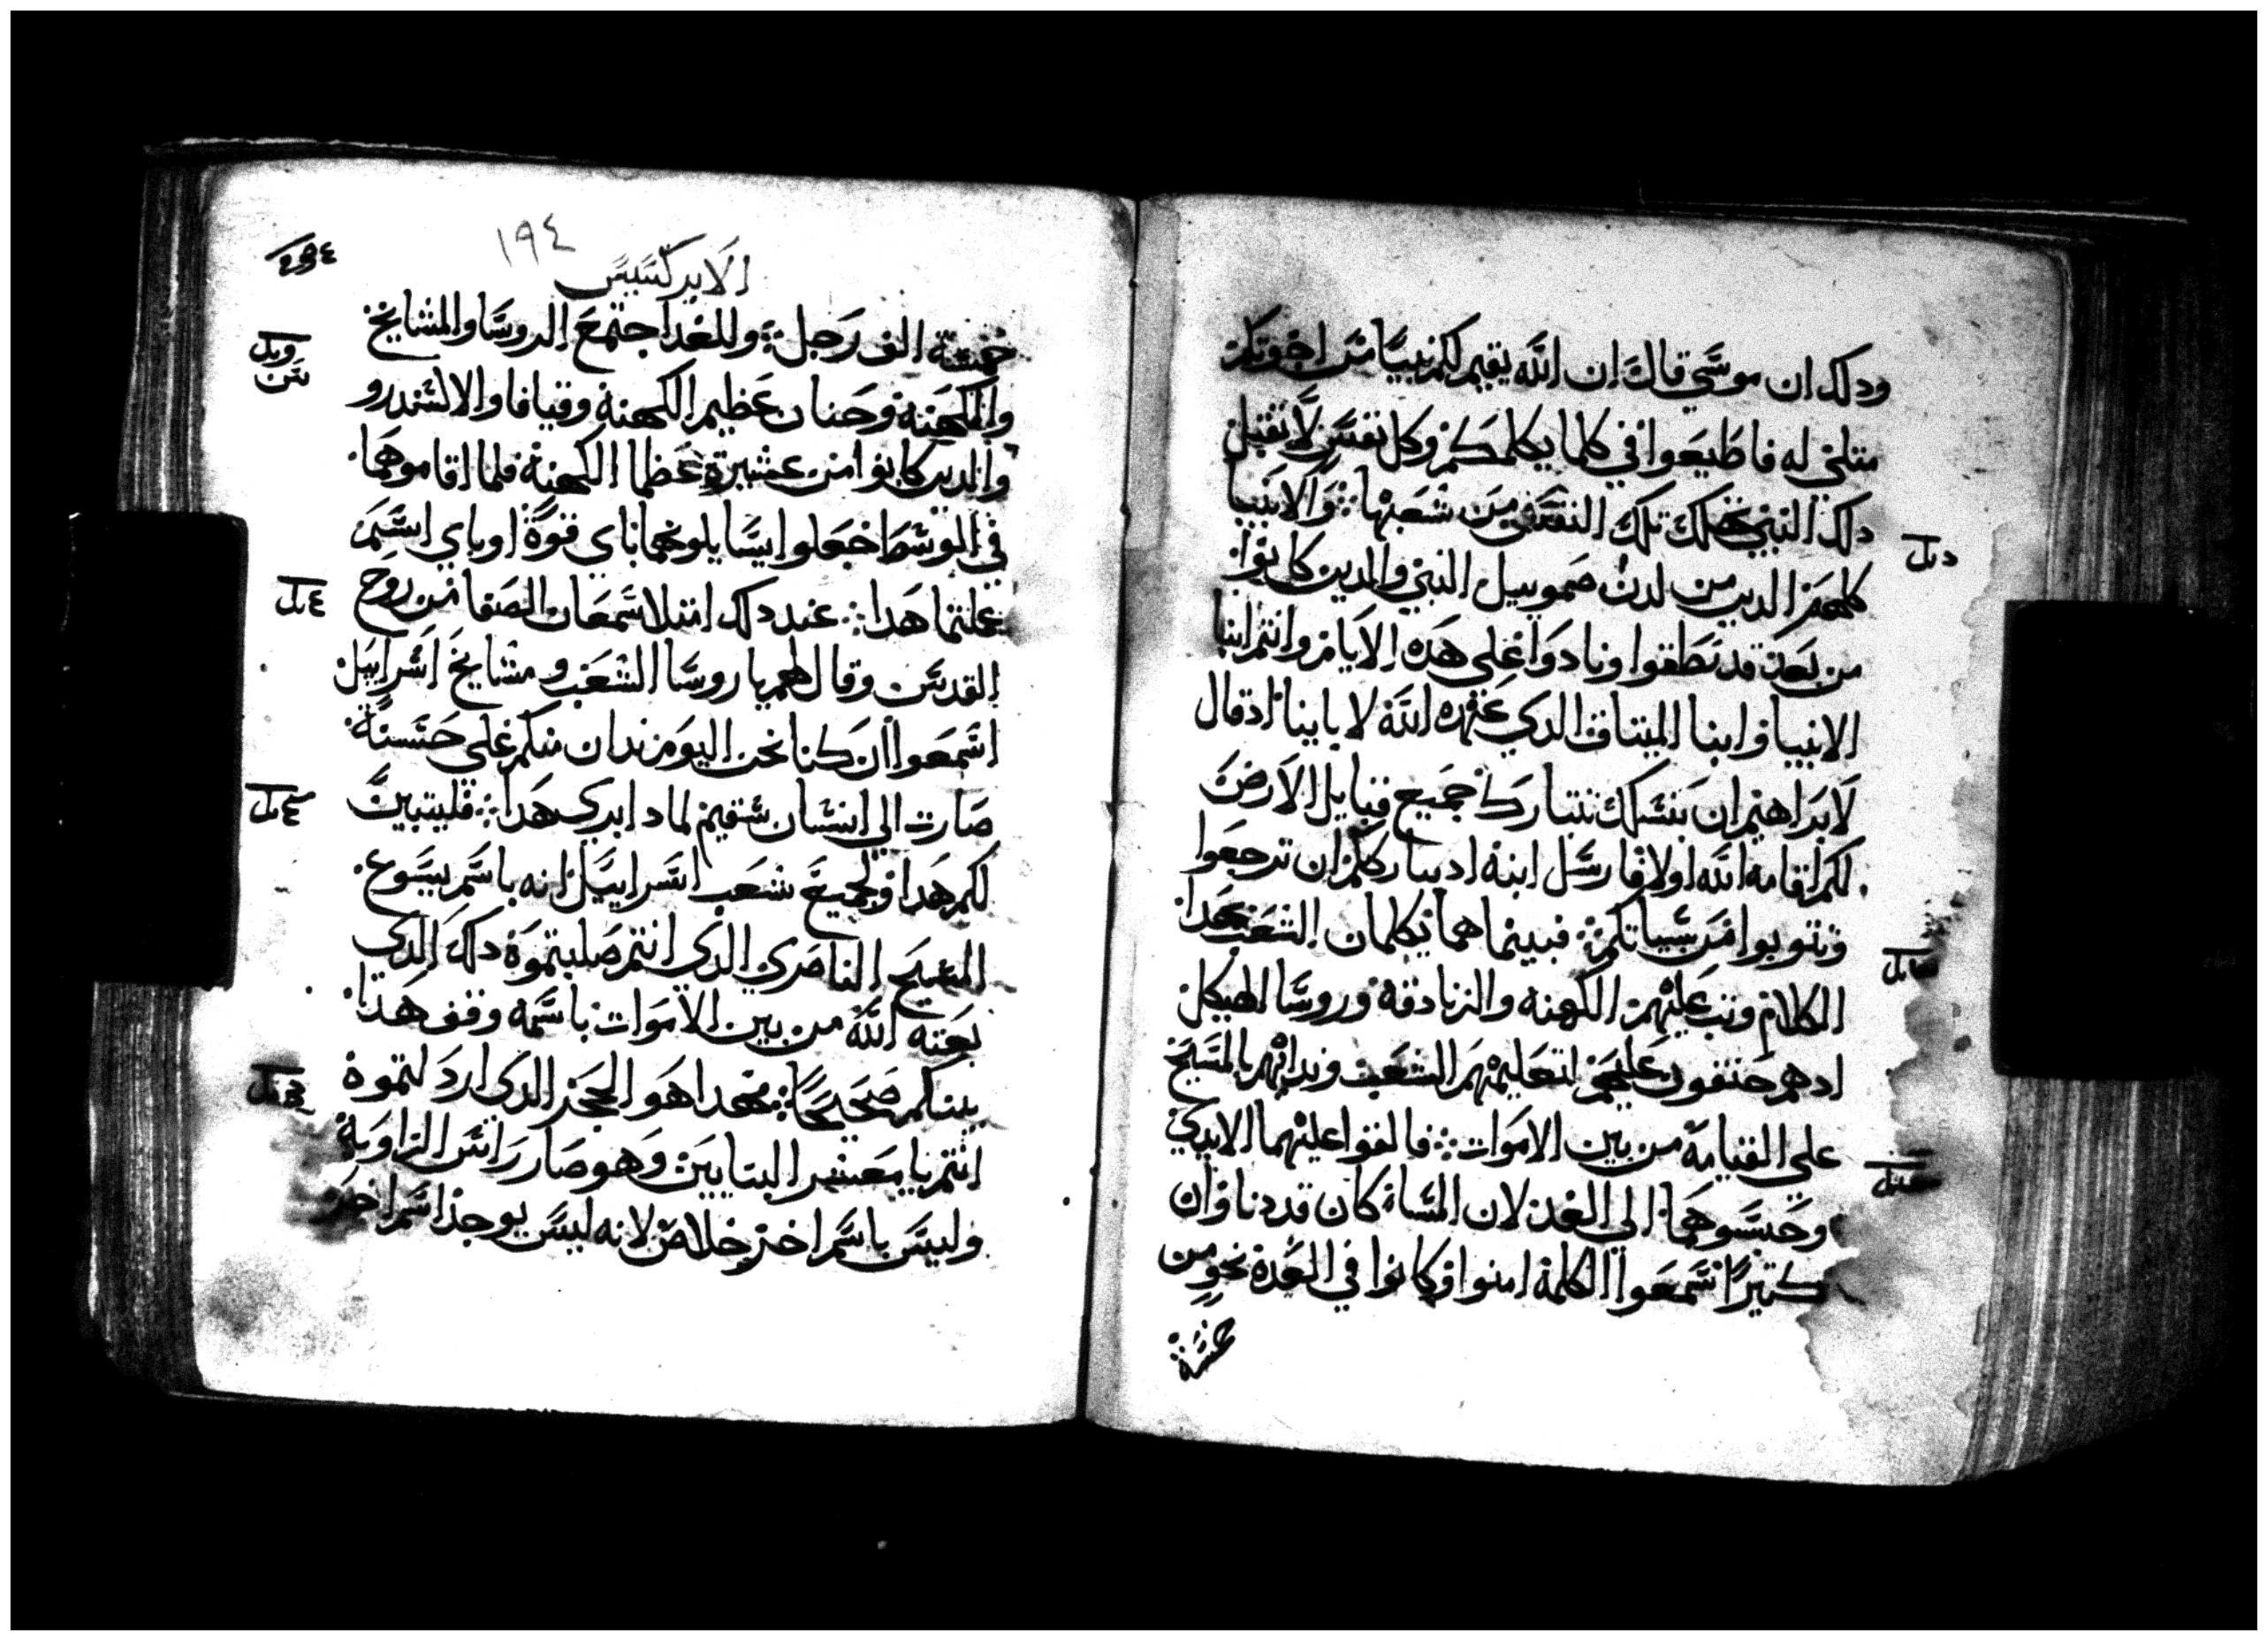 ودلك ان موسي قال ان الله يقيم لكم نبيا من اخوتكم
متلي له فاطيعوا في كلما يكلمكم وكل نفس لا تقبل
دلك النبي تهلك تلك النفس من شعبها والانبيا
كلهم الدين من لدن صموييل النبي والدين كانوا
من بعده قد نطقوا ونادوا علي هده الايام وانتم ابنا
الانبيا وابنا الميتاق الدي عهده الله لاباينا اد قال
لابراهيم ان بنسلك تتبارك جميع قبايل الارض
لكم اقامه الله اولا فارسل ابنه اد يبارككم ان ترجعوا
وتتوبوا من سياتكم فبينما هما يكلمان الشعب بهدا
الكلام وتب عليهم الكهنه والزنادقة وروسا الهيكل
ادهم حنقون عليهم لتعليمهم الشعب وندايهم بالمسيح
علي القيامة من بين الاموات فالقوا عليهما الايدي
وحبسوهما الي الغد لان المسا كان قد دنا وان
كتيرا سمعوا الكلمة امنوا وكانوا في العدة نحو من
خمسة
١٩٤
الابركسيس
خمسة الف رجل وللغد اجتمع الروسا والمشايخ
والكهنة وحنان عظيم الكهنة وقيافا والالسندرو
والدين كانوا من عشيرة عظما الكهنة فلما اقاموهما
في الوسط جعلوا يسايلونهما باي قوة او باي اسم
عملتما هدا عند دلك امتلا سمعان الصفا من روح
القدس وقال لهم يا روسا الشعب ومشايخ اسراييل
اسمعوا ان كنا نحن اليوم ندان منكم علي حسنة
صارت الي انسان سقيم لمادا بري هدا فليتبين
لكم هدا ولجميع شعب اسراييل انه باسم يسوع
المسيح الناصري الدي انتم صلبتموه دلك الدي
بعته الله من بين الاموات باسمه وقف هدا
بينكم صحيحا فهدا هو الحجر الدي اردلتموه
انتم يا معشر البنايين وهو صار راس الزاوية
وليس باسم اخر خلاص لانه ليس يوجد اسم اخر